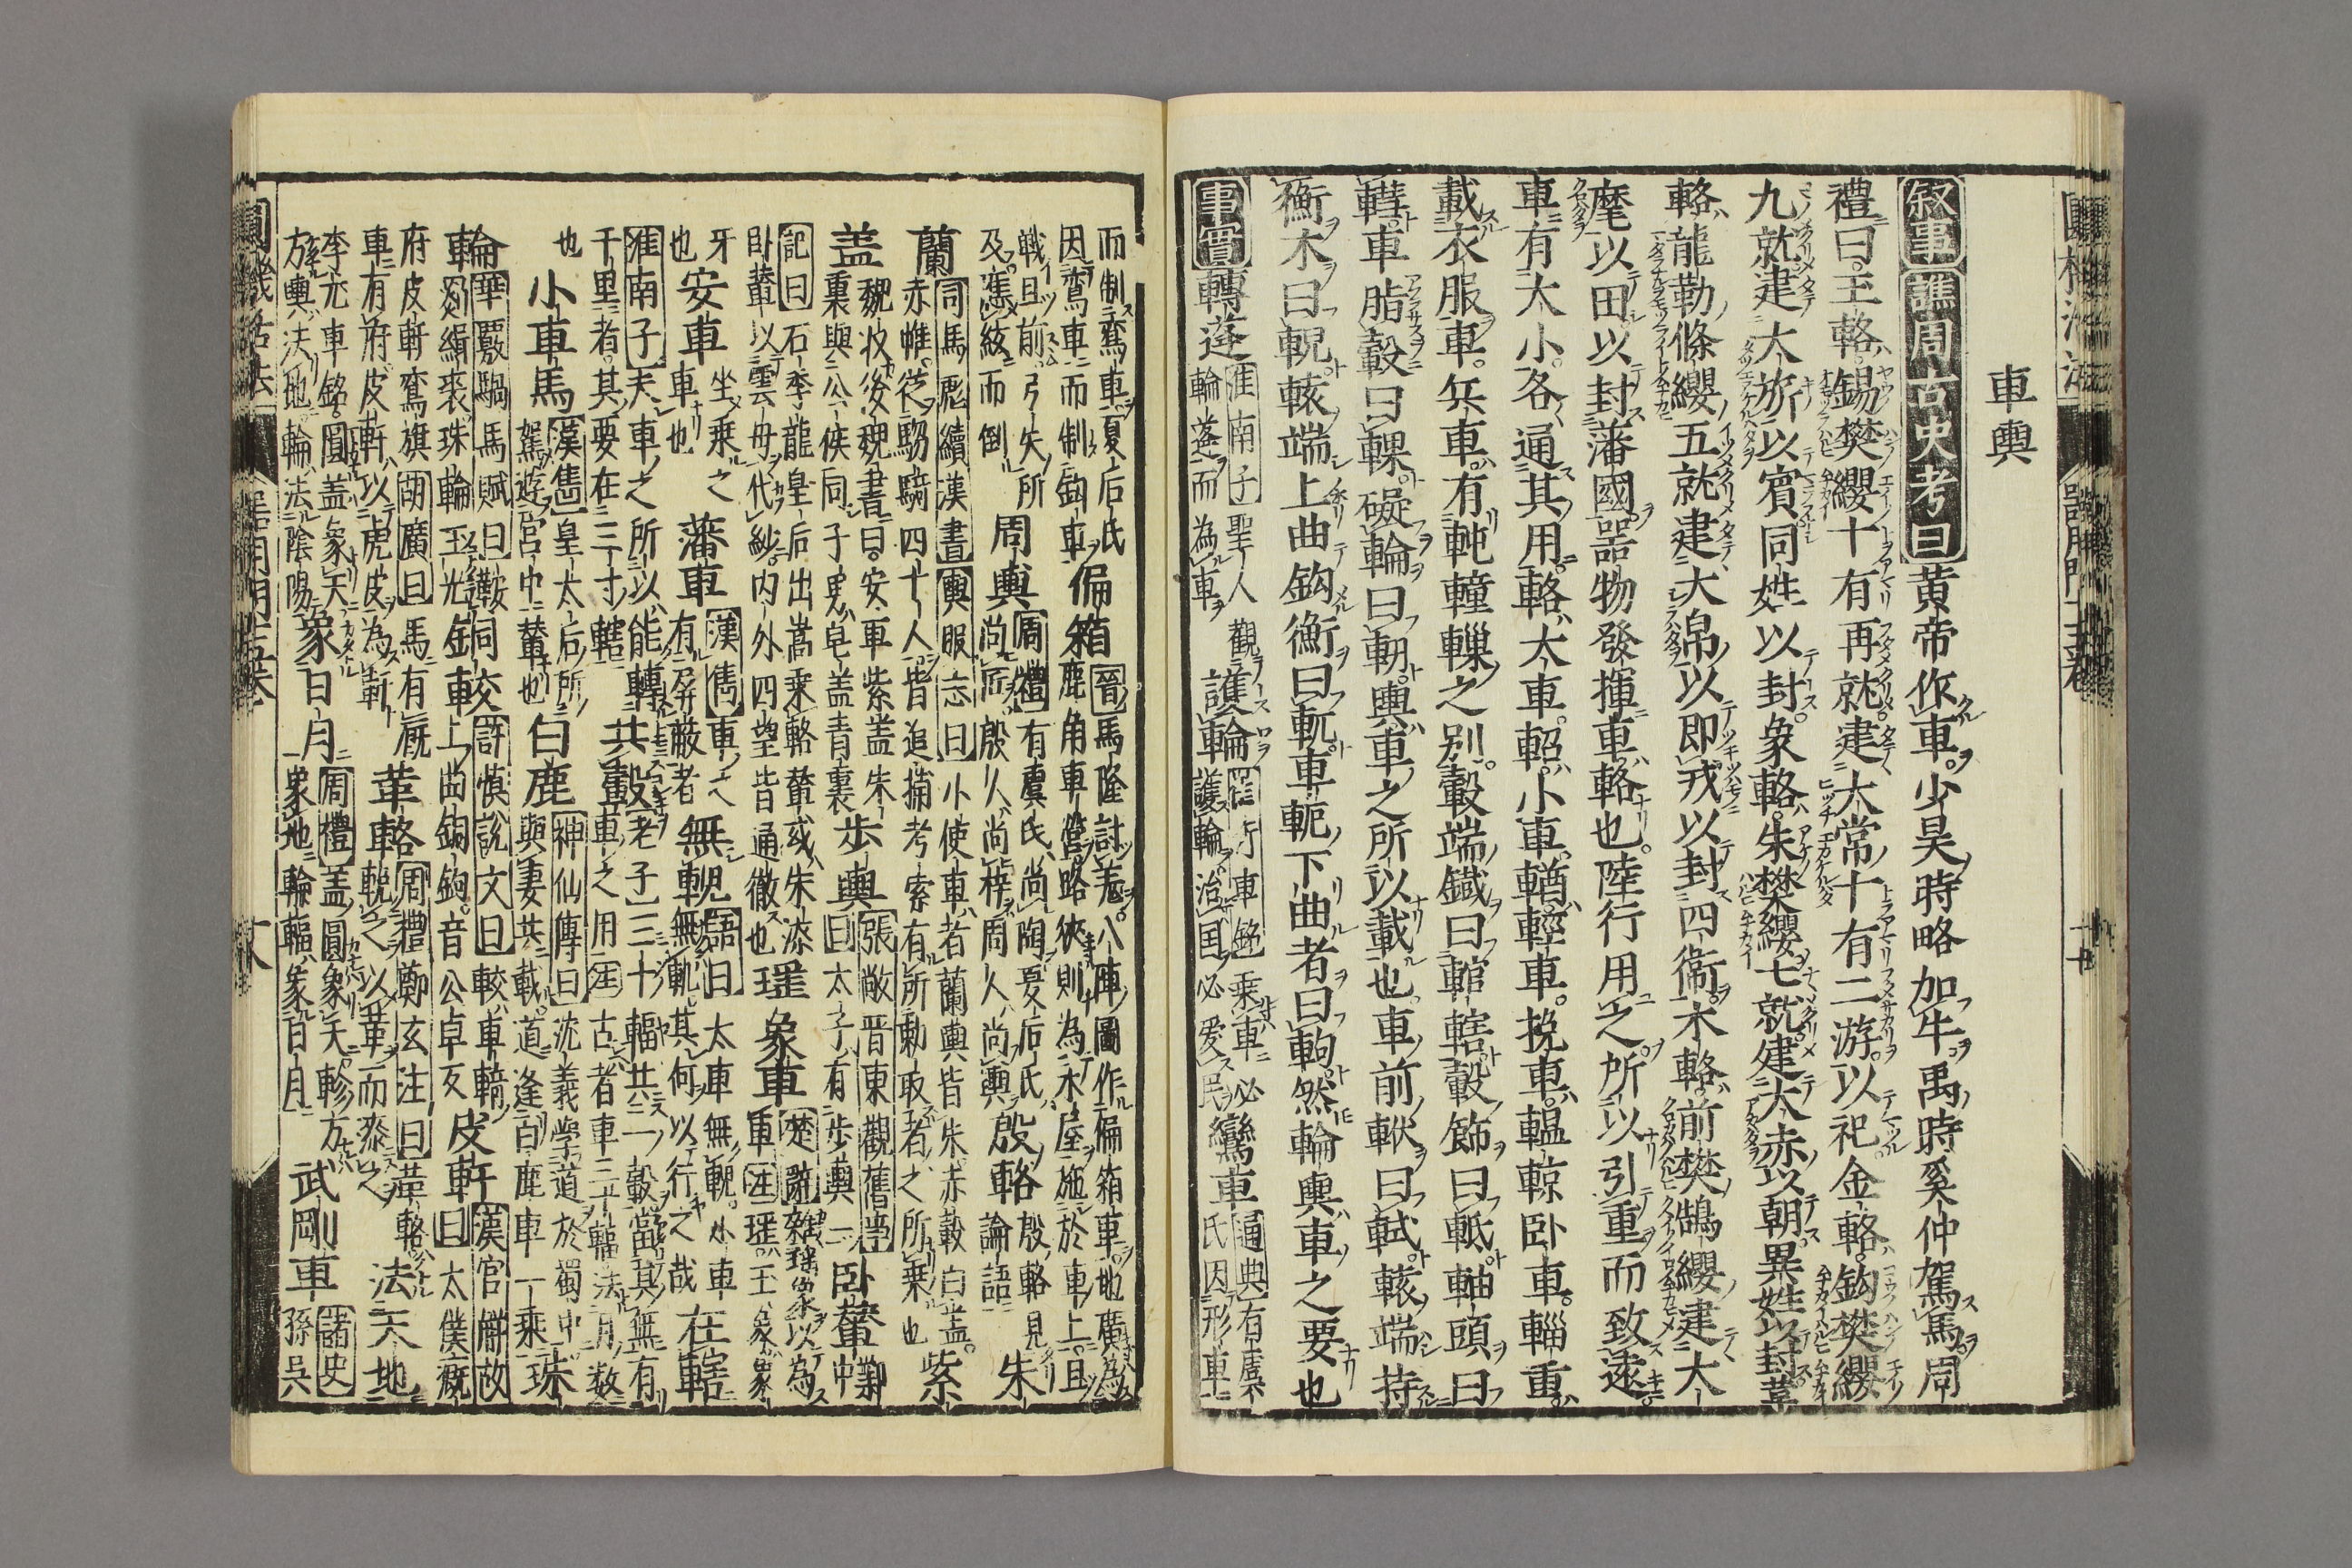 車輿
叙事 譙周古史考曰黄帝作車少昊時略加牛禹時奚仲駕馬周
禮曰王輅錫樊纓十有再就建大常十有二游以祀金輅鈎樊纓
九就建大旂以賓同姓以封象輅朱樊纓七就建大赤以朝異姓以封革
輅龍勒條纓五就建大帛以即戎以封四衞木輅前樊鵠纓建大
麾以田以封藩國器物發揮車輅也陸行用之所以引重而致遠
車有大小各通其用輅大車軺小車輶輕車輓車轀輬卧車輜重
載衣服車兵車有軘轒轈之别轂端鐵曰輨轄轂飾曰軝軸頭曰
轊車脂轂曰輠礙輪曰軔輿車之所以載也車前軾曰軾軹端持
衡木曰輗軏端上曲鈎衡曰軏車軛下曲者曰軥然輪輿車之要也
事實 轉蓬 淮南子聖人觀
輪蓬而為車 護輪 乘車必
護輪治国必愛民 鸞車 通典有虞
氏因形車
而制鸞車夏后氏
因鸞車而制鈎車 偏箱 晉馬隆討羌八陣圖作偏箱車地廣為
鹿角車營路狹則為木屋施於車上且
戰且前弓矢所
及應絃而倒 周輿 周禮有虞氏尚陶夏后氏
尚匠殷人尚梓周人尚輿 殷輅 殷輅見
論語 朱
蘭 司馬彪續漢書輿服志曰小使車者蘭輿皆朱赤轂白盖
赤帷從騶騎四十人皆追捕考索有所勅取者之所乘也 紫
盖 魏収後魏書曰安車紫盖朱
裏與公侯同子男皂盖青裏 步輿 張敞晉東觀舊典
曰太子有步輿一 卧輦 鄴中
記曰石季龍皇后出嵩乘輅輦或朱漆
卧輦以雲母代紗内外四望皆通徹也 瑶象車 楚辭雜瑶象以為
車注瑶玉象象
牙
也 安車 坐乘之
車也 藩車 漢雋車之
有屏蔽者 無輗 語曰太車無輗小車
無軏其何以行之哉 在轄
淮南子夫車之所以能轉
千里者其要在三寸轄 共轂 老子三十輻共一轂當其無有
車之用注古者車三十輻法月数
也 小車馬 漢雋皇太后所
駕遊宮中輦也 白鹿 神仙傳曰沈義學道於蜀中
與妻共載道逢白鹿車一乘 珠
輪 華覈駰馬賦曰鞍
勒緝裘珠輪玉光 銅較 許慎說文曰較車輢
上曲銅鈎音公卓反 皮軒 漢官儀故
曰太僕廐
府皮軒鸞旗胡廣曰馬有廐
車有府皮軒以虎皮為軒 革輅 周禮鄭玄注曰革輅
輓之以革而漆之 法天地
李尤車銘圓盖象天
方輿法地輪法陰陽 象日月 周禮盖圓象天軫方
象地輪輻象日月 武剛車 諸史
孫吳